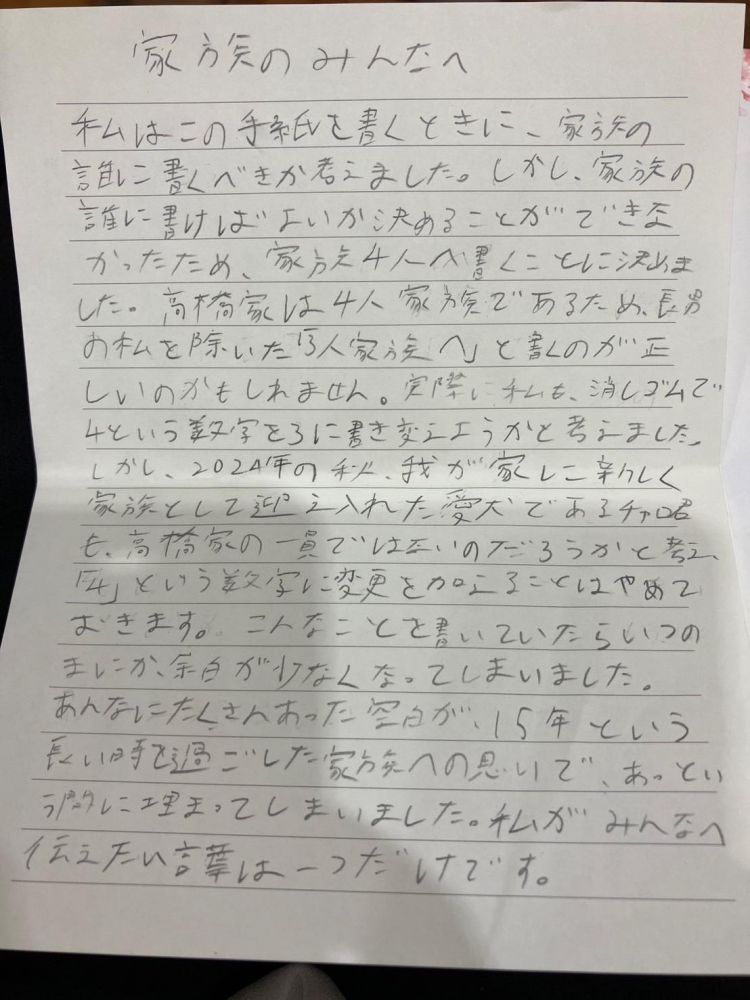 家族のみんなへ
私はこの手紙を書くときに、家族の
誰に書くべきか考えました。しかし、家族の
誰に書けばよいか決めることができな
かったため、家族4人へ書くことに決めま
した。高橋家は4人家族であるため、長男
の私を除いた「3人家族へ」と書くのが正
しいのかもしれません。実際に私も、消しゴムで
4という数字を3に書き変えようかと考えました。
しかし、2024年の秋、我が家に新しく
家族として迎え入れた愛犬であるチャロ君
も、高橋家の一員ではないのだろうかと考え、
「4」という数字に変更を加えることはやめて
おきます。こんなことを書いていたらいつの
まにか、余白が少なくなってしまいました。
あんなにたくさんあった空白が、15年という
長い時を過ごした家族への思いで、あっとい
う間に埋まってしまいました。私がみんなへ
伝えたい言葉は一つだけです。